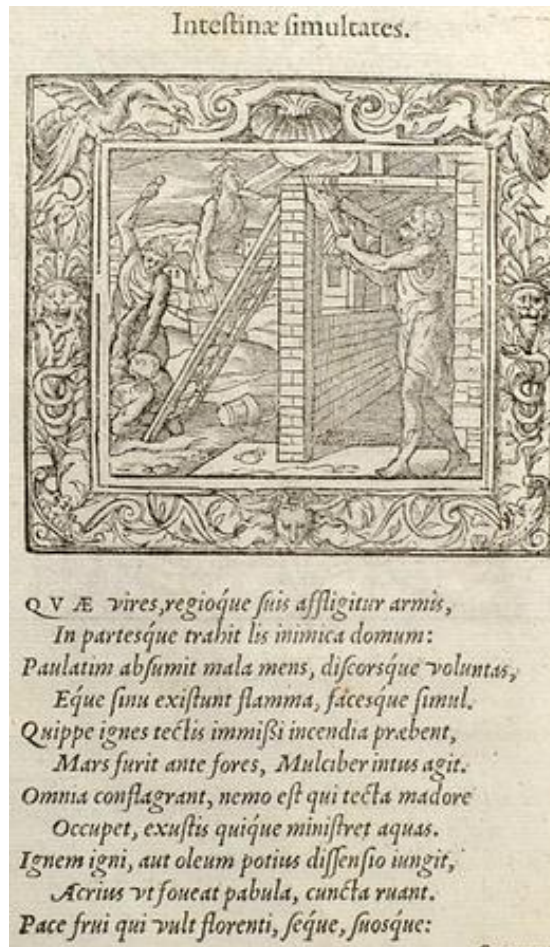 Intestinæ ſimultates.
QVÆ vires, regioq́ue ſuis affligitur armis,
In parteſq́ue trahit lis inimica domum:
Paulatim abſumit mala mens, diſcorſq́ue voluntas,
Eq́ue ſinu exiſtunt flamma, faceſq́ue ſimul.
Quippe ignes tectis immiſsi incendia præbent,
Mars furit ante fores, Mulciber intus agit.
Omnia conflagrant, nemo eſt qui tecta madore
Occupet, exuſtis quiq́ue miniſtret aquas.
Ignem igni, aut oleum potius diſſenſio iungit,
Acrius vt foueat pabula, cuncta ruant.
Pace frui qui vult florenti, ſeq́ue, ſuoſq́ue: